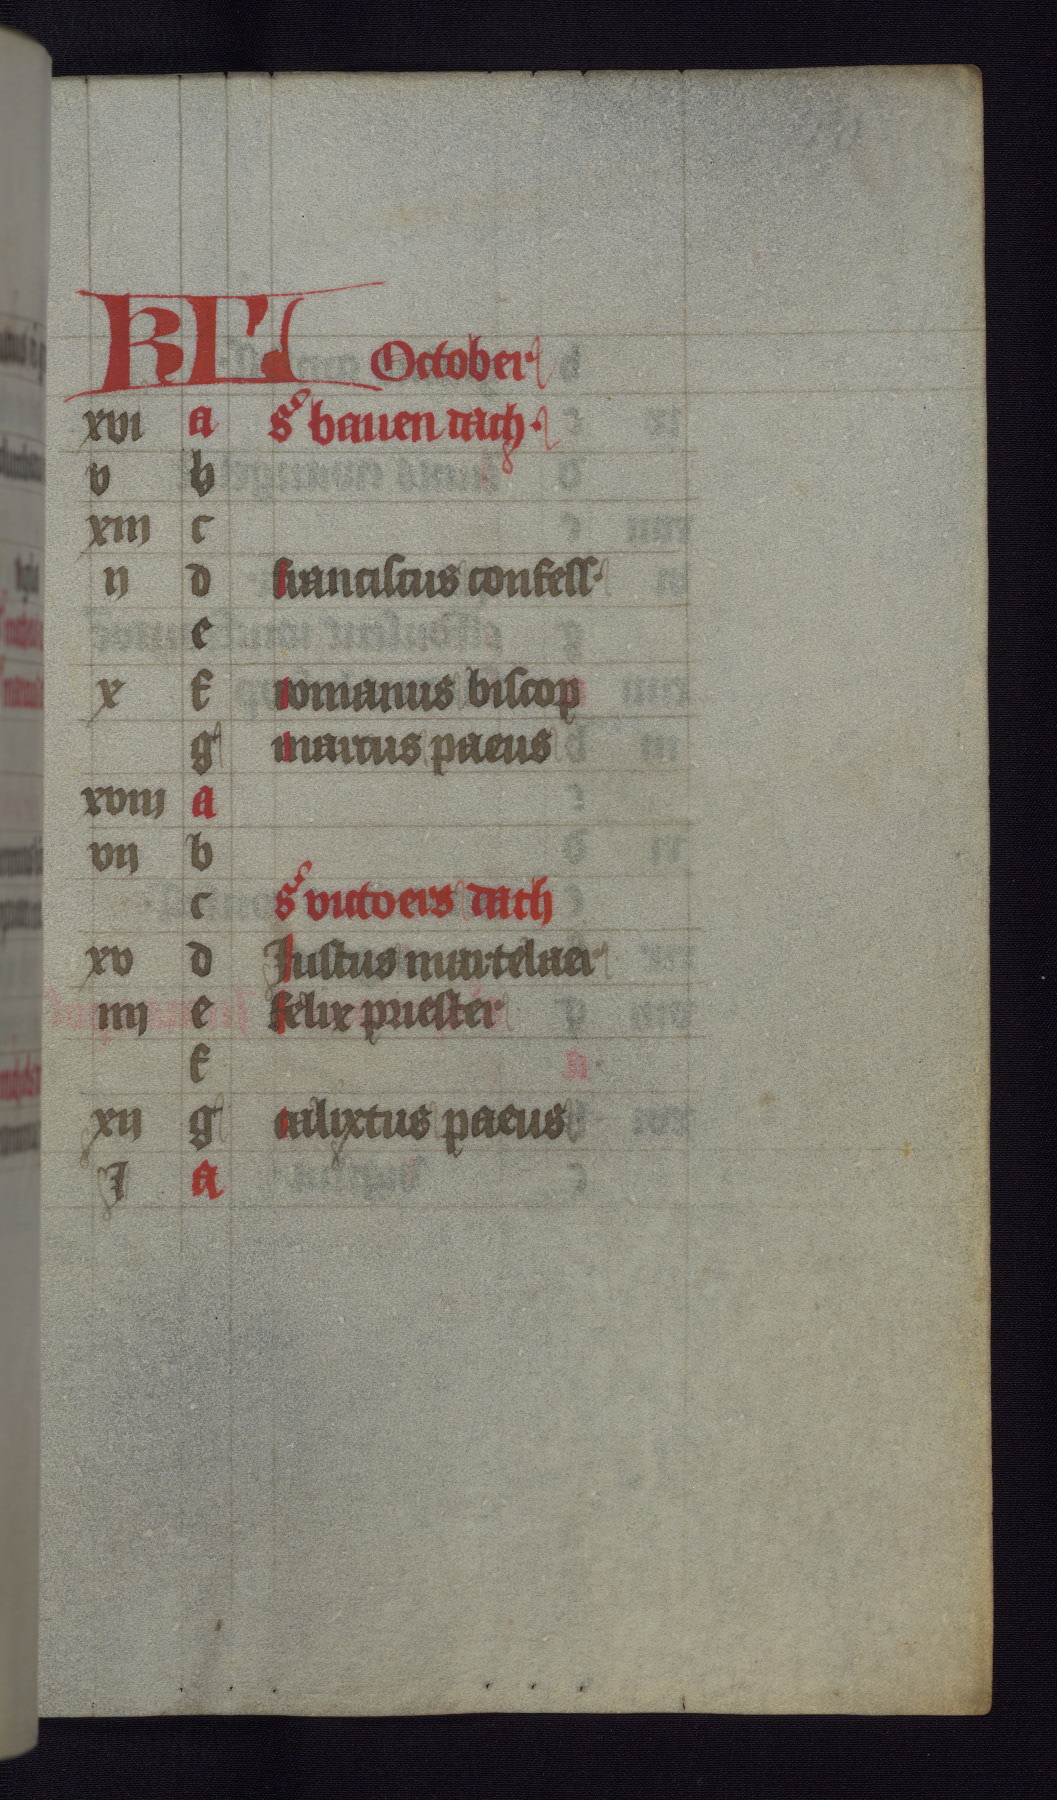 KL October
xvi a s͛ bauen dach.
v b
xiii c
ii d franciscus confess.
e
x f romanus biscop
g marcus paeus
xviii a
vii b
c s͛ victoers dach
xv d Justus martelaer
iiii e felix priester
f
xii g calixtus paeus
J a